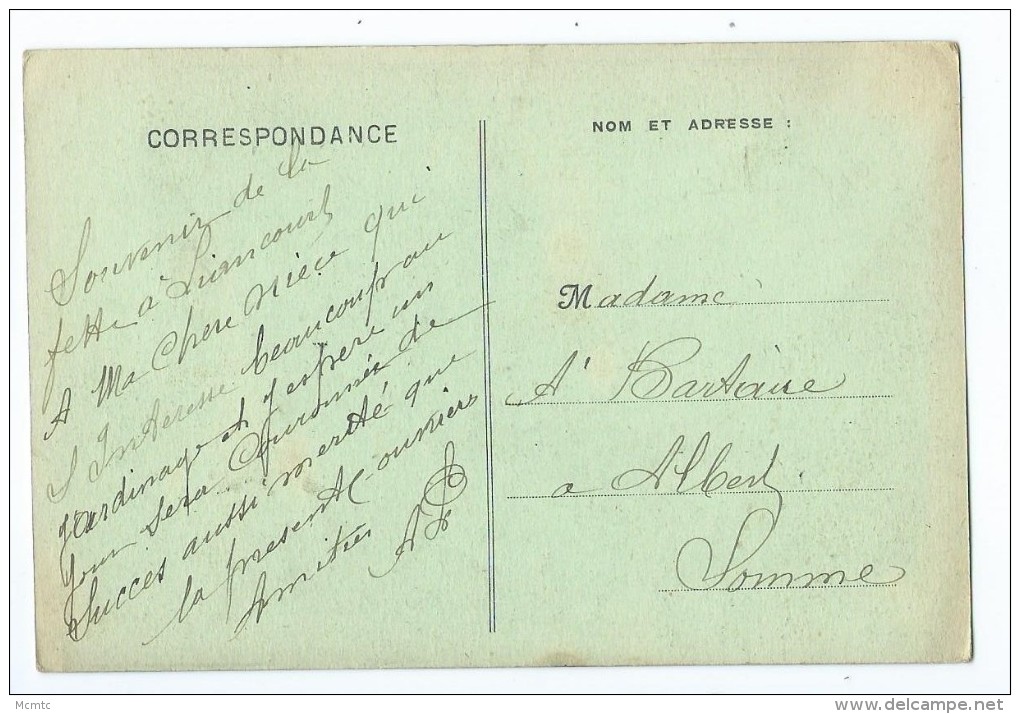 CORRESPONDANCE
Souvenir de la
fette à Liancourt
A Ma Chere Niéce qui
S Interesse beaucoup au
Jardinage et J'espere un
Jour sera Couronnée de
Succes aussi merité que
la presente
Amities
NOM ET ADRESSE :
Madame
a Albert
Somme
Mcmtc
www.delcampe.net